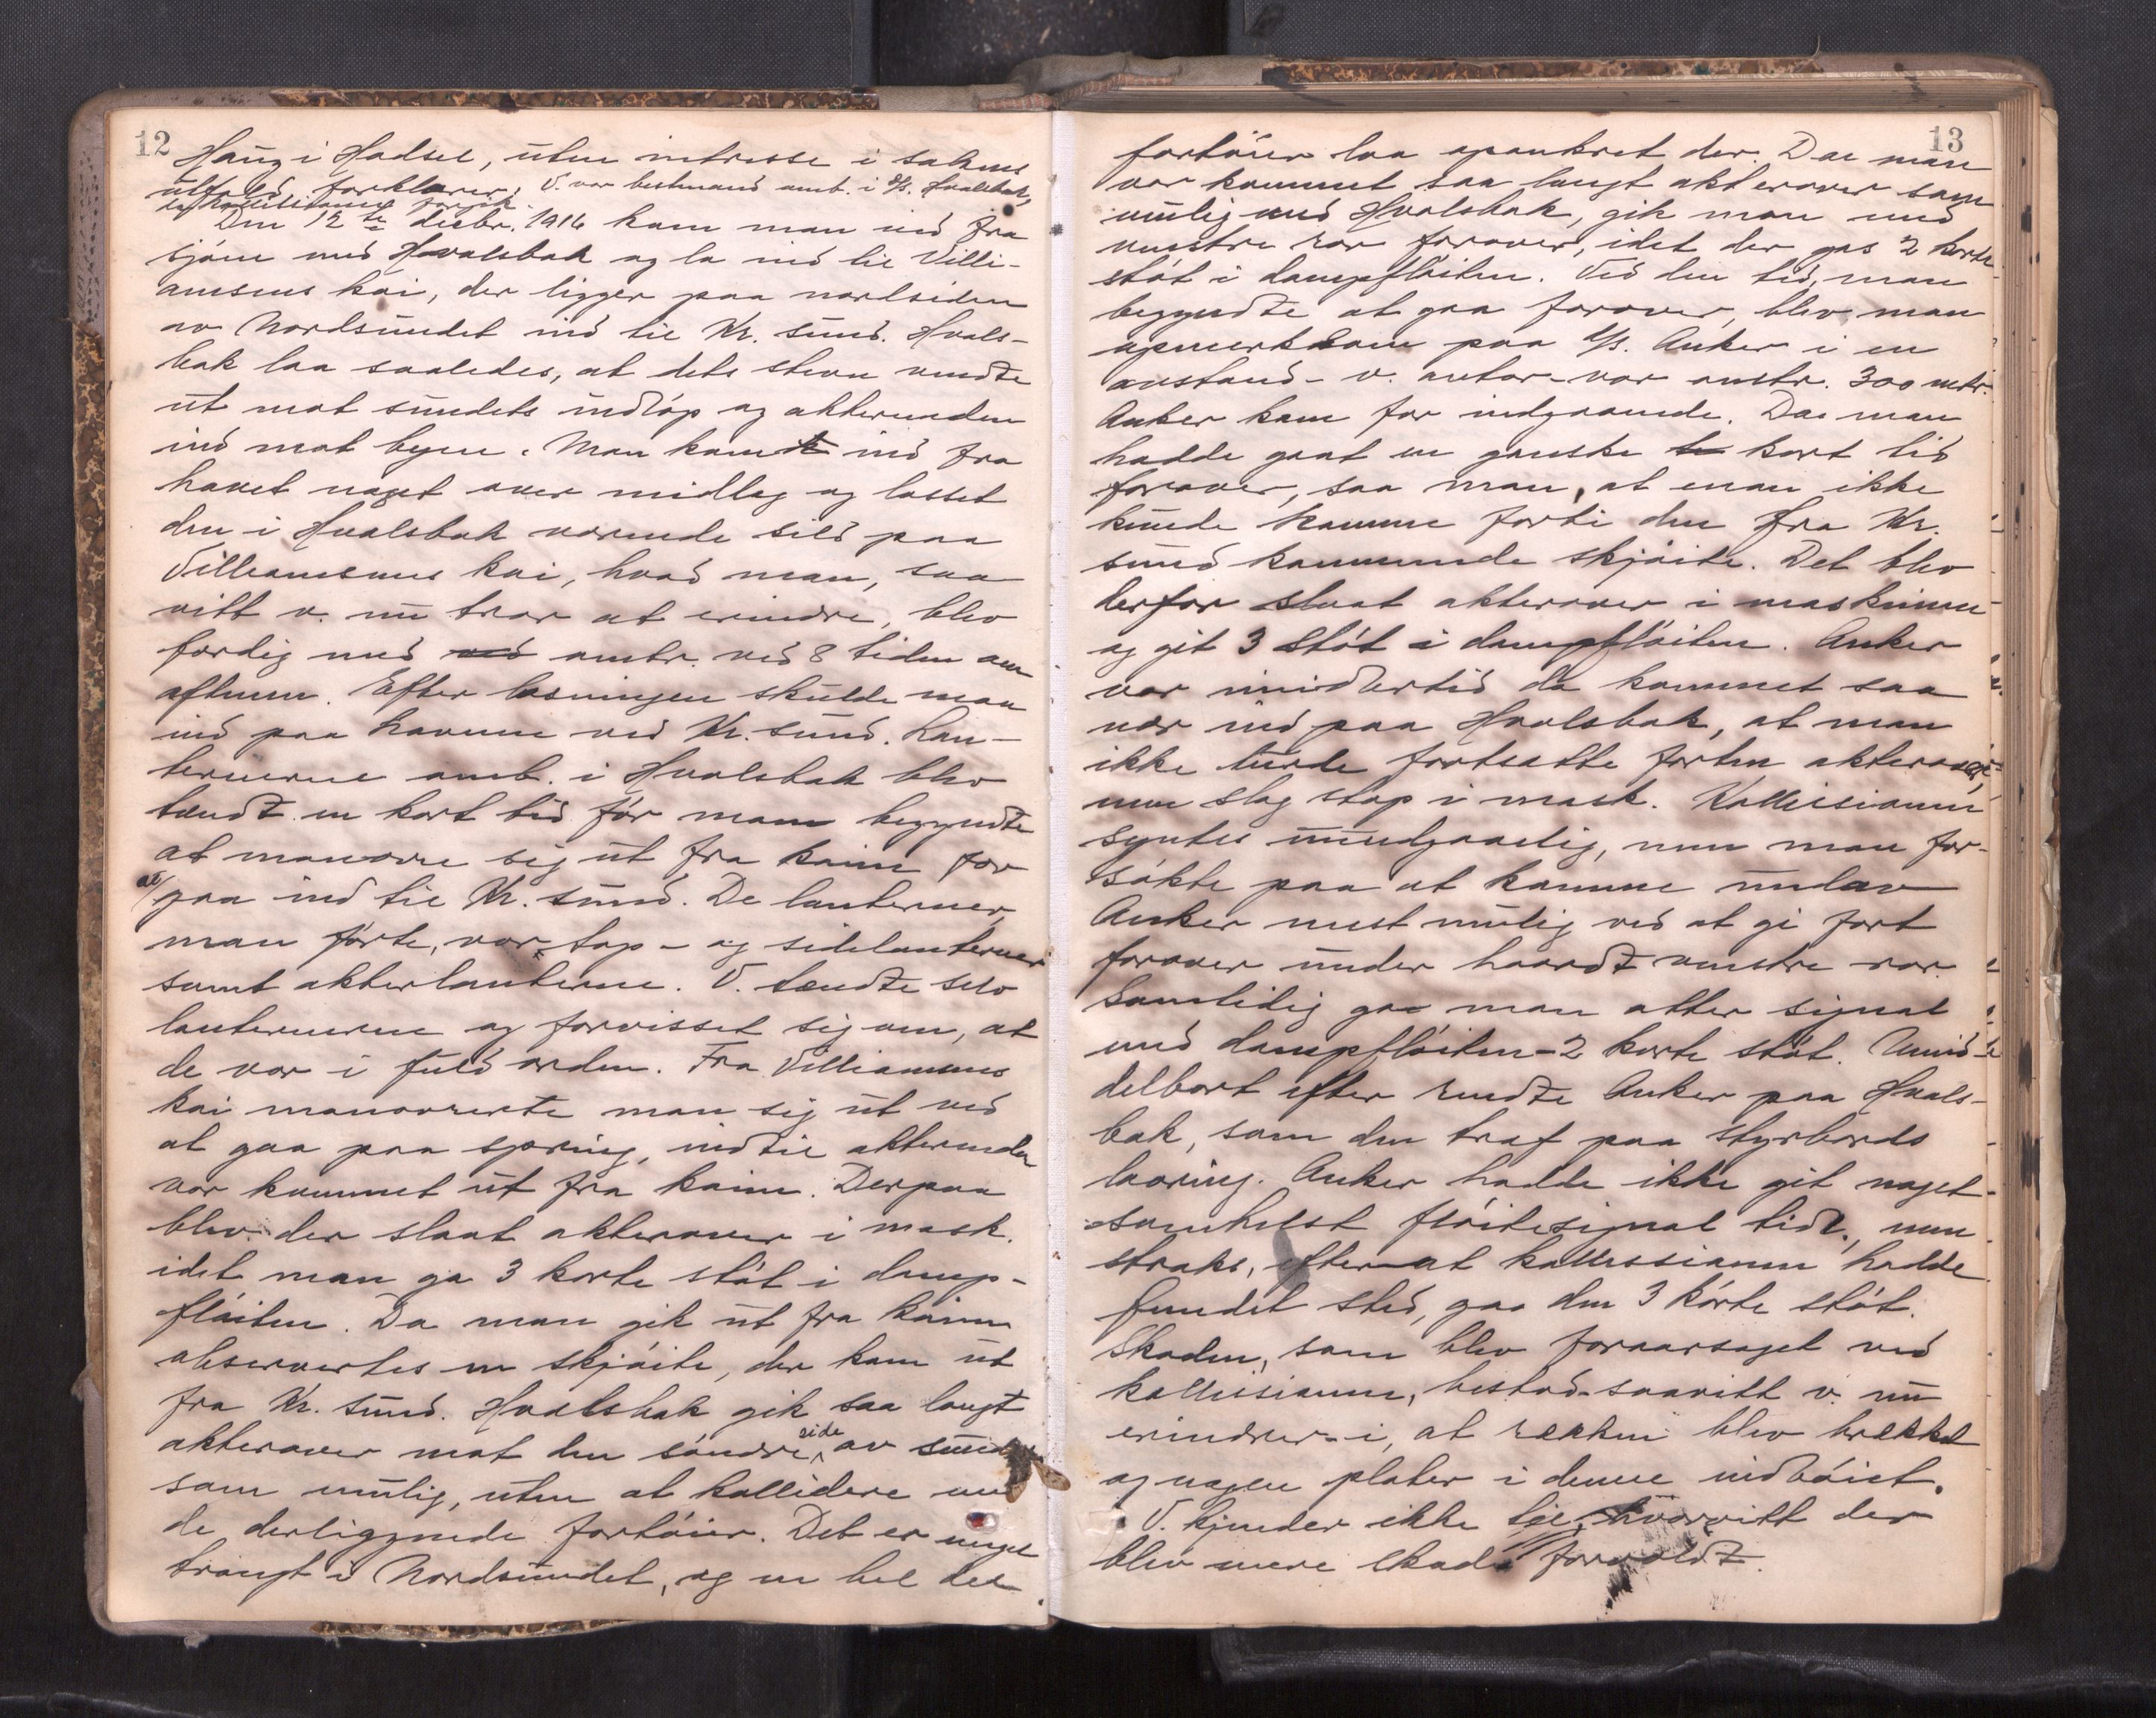 12
Haug i Hadsel, uten intresse i sakens
utfald, forklarer: V. var bestmand omb. i d/s. Hvalsbak,
da kollisionen foregik.
Den 12te decbr. 1916 kom man ind fra
sjøen med Hvalsbak og la ind til Villi-
amsens kai, der ligger paa nordsiden
av Nordsundet ind til Kr. sund. Hvals-
bak laa saaledes, at dets stevn vendte
ut mot sundets indløp og akterenden
ind mot byen. Man kom ind fra
havet noget over middag og losset
den i Hvalsbak værende sild paa
Villiamsens kai, hvad man, saa
vitt v. nu tror at erindre, blev
færdig med omtr. ved 8 tiden om
aftenen. Efter losningen skulde man
ind paa havnen ved Kr. sund. Lan-
ternerne omb. i Hvalsbak blev
tændt en kort tid før man begyndte
at manøvre sig ut fra kaien for
at gaa ind til Kr. sund. De lanterner,
man førte, var top- og sidelanterner
samt akterlanterne. V. tændte selv
lanternerne og forvisset sig om, at
de var i fuld orden. Fra Villiamsens
kai manøvrerte man sig ut ved
at gaa paa spring, indtil akterenden
var kommet ut fra kaien. Derpaa
blev der slaat akterover i mask.
idet man ga 3 korte støt i damp-
fløiten. Da man gik ut fra kaien
observertes en skjøite, der kom ut
fra Kr. sund. Hvalsbak gik saa langt
akterover mot den søndre side av sundet
som mulig, uten at kollidere med
de derliggende fartøier. Det er meget
trangt i Nordsundet, og en hel del
13
fartøier laa opankret der. Da man
var kommet saa langt akterover som
mulig med Hvalsbak, gik man med
venstre ror forover, idet der gas 2 korte
støt i dampfløiten. Ved den tid, man
begyndte at gaa forover, blev man
opmerksom paa d/s. Anker i en
avstand - v. antar - var omtr. 300 mtr.
Anker kom for indgaaende. Da man
hadde gaat en ganske kort tid
forover, saa man, at man ikke
kunde komme forbi den fra Kr.
sund kommende skjøite. Det blev
derfor slaat akterover i maskinen
og git 3 støt i dampfløiten. Anker
var imidlertid da kommet saa
nær ind paa Hvalsbak, at man
ikke turde fortsætte farten akterover,
men slog stop i mask. Kollisionen
syntes uundgaaelig, men man for-
søkte paa at komme undav
Anker mest mulig ved at gi fart
forover under haardt venstre ror.
Samtidig ga man atter signal
med dampfløiten - 2 korte støt. Umid-
delbart efter rendte Anker paa Hvals-
bak, som den traf paa styrbords
laaring. Anker hadde ikke git noget-
somhelst fløitesignal tidl., men
straks, efter at kollissionen hadde
fundet sted, gav den 3 korte støt.
Skaden, som blev foraarsaget ved
kollisionen, bestod - saavitt v. nu
erindrer - i, at rækken blev brækket
og nogen plater i denne indbøiet.
V. kjender ikke til, hvorvitt der
blev mere skade forvoldt.